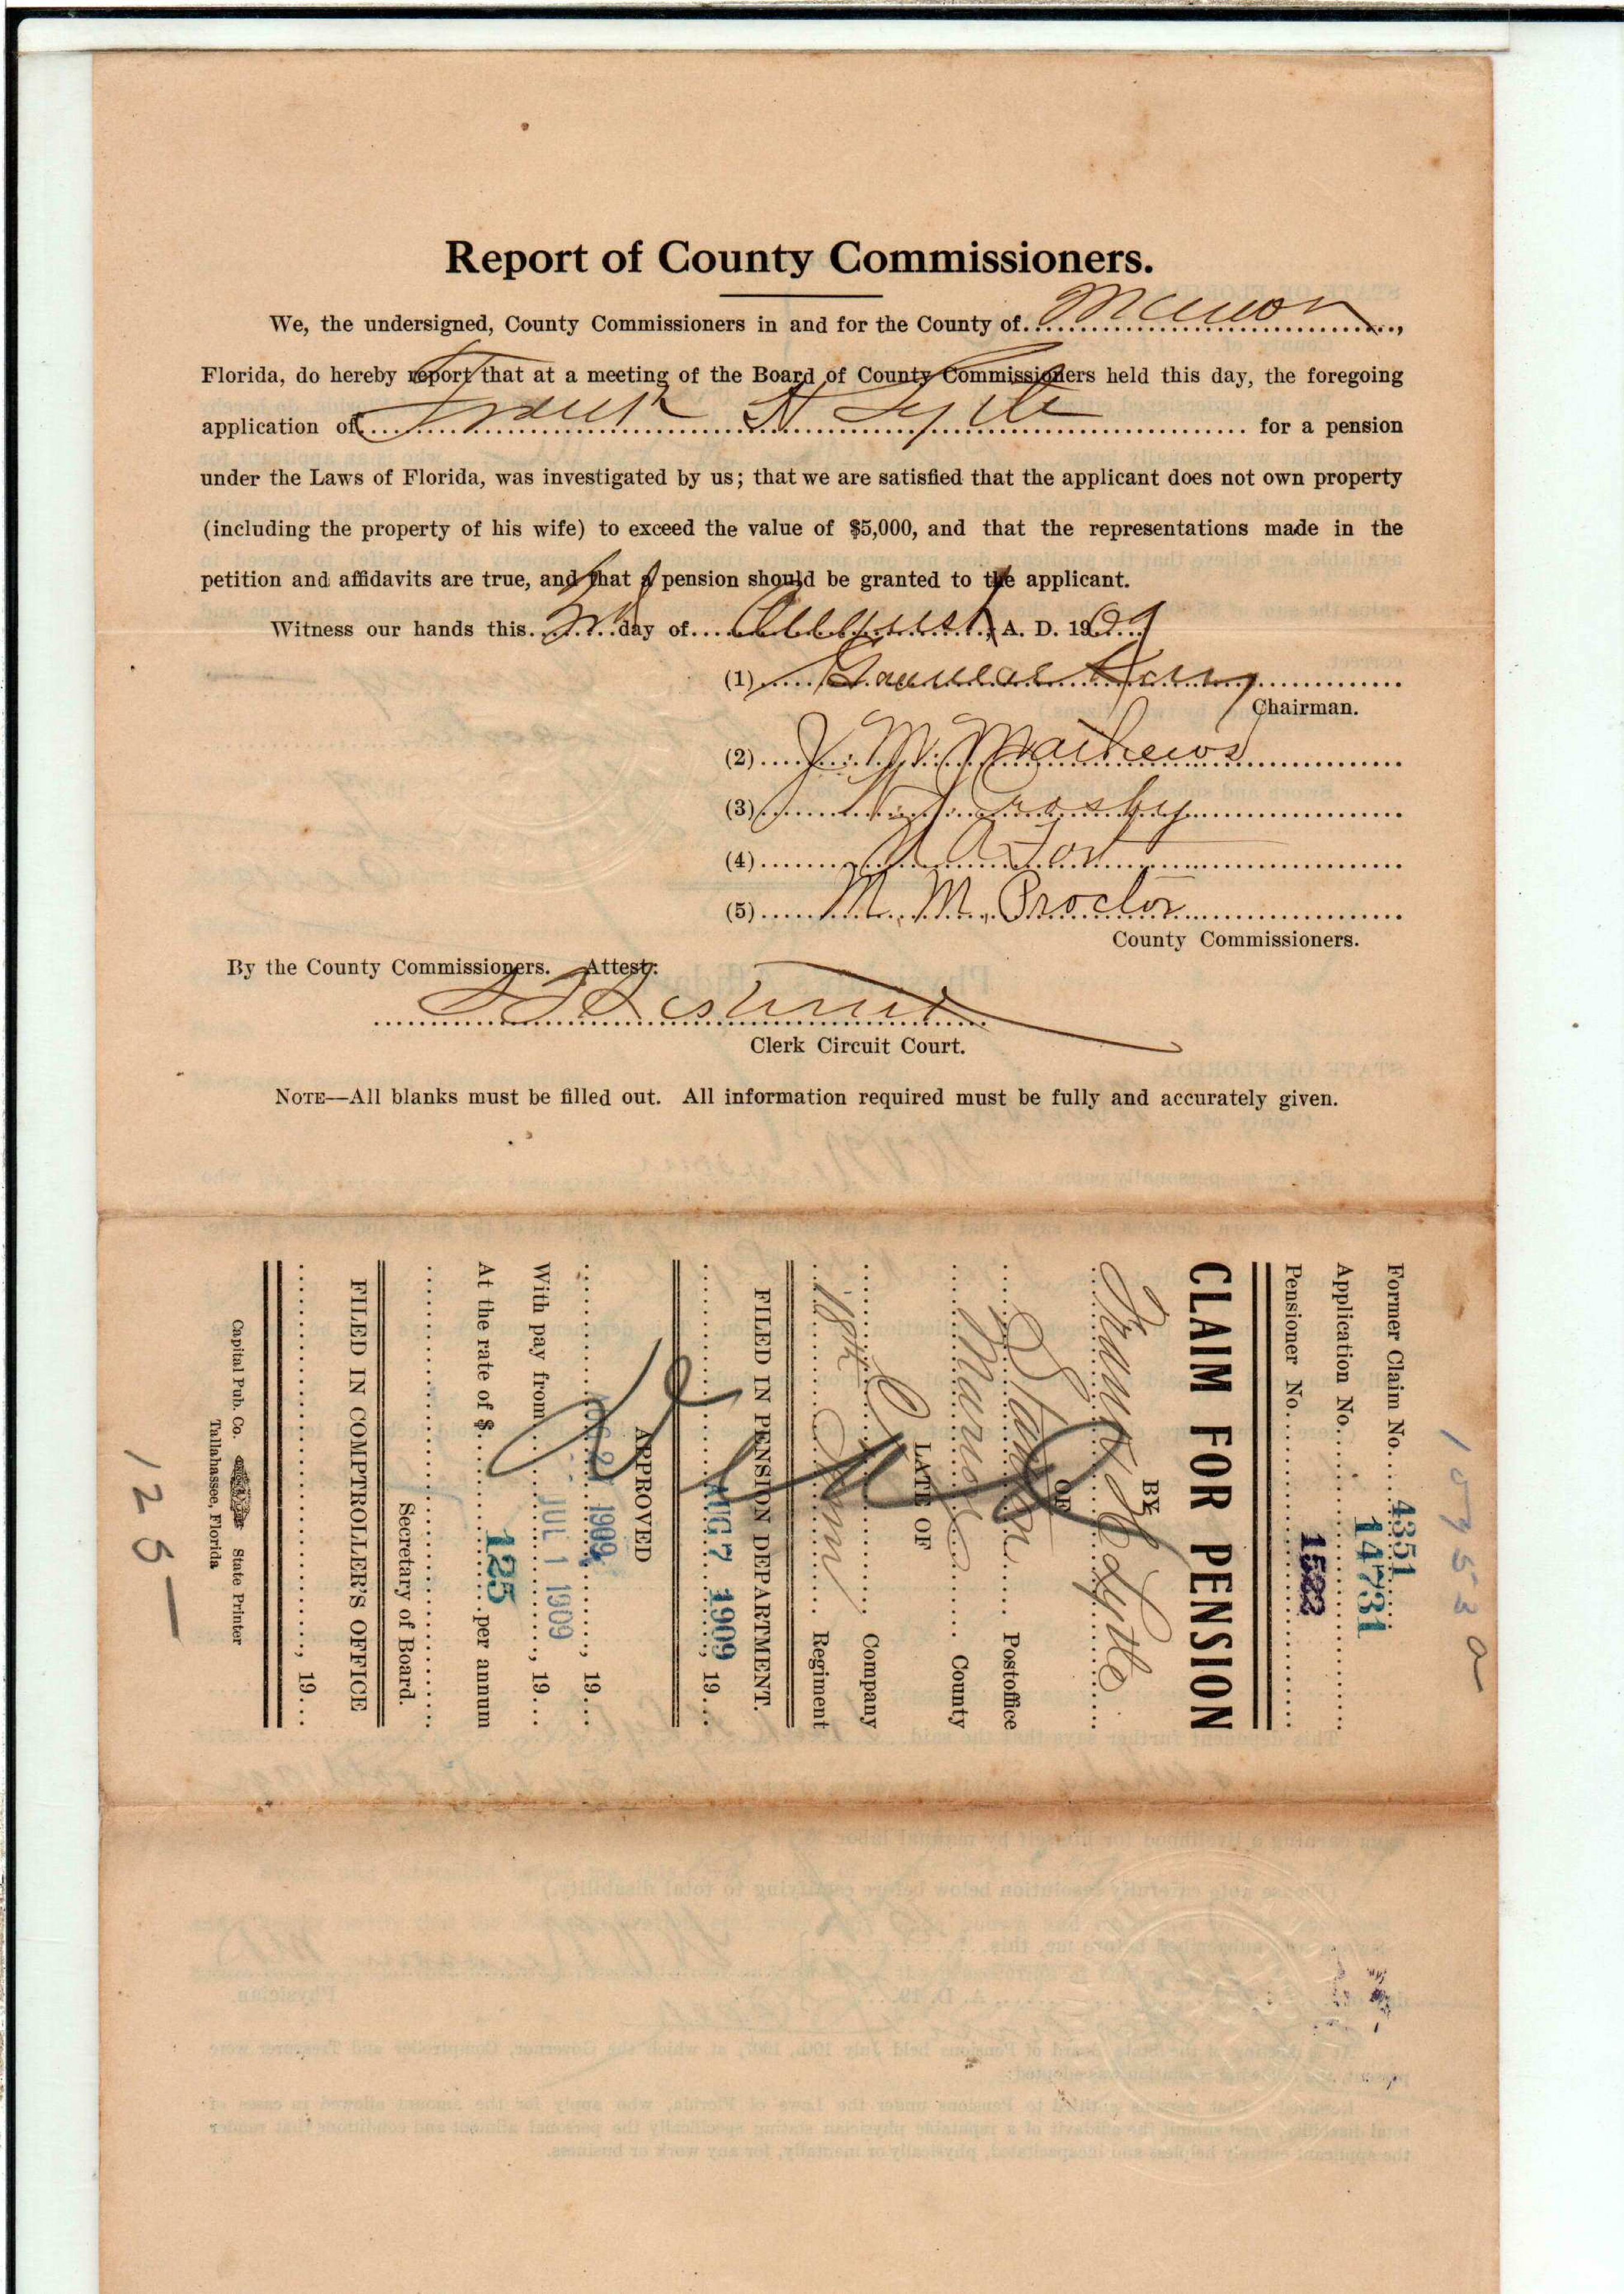 Report of County Commissioners.
We, the undersigned, County Commissioners in and for the County of Marion,
Florida, do hereby report that at a meeting of the Board of County Commissioners held this day, the foregoing
application of Frank H Lytle for a pension
under the Laws of Florida, was investigated by us; that we are satisfied that the applicant does not own property
(including the property of his wife) to exceed the value of $5,000, and that the representations made in the
petition and affidavits are true, and that a pension should be granted to the applicant.
Witness our hands this day of August A. D. 1909
(1)
Chairman.
(2) J. M. Mathews
(3) Crosby
(4)
(5) M. M. Proctor
County Commissioners.
By the County Commissioners. Attest:
Clerk Circuit Court.
NOTE—All blanks must be filled out. All information required must be fully and accurately given.
10753a
Former Claim No. 4351
Application No. 14731
Pensioner No. 1522
CLAIM FOR PENSION
BY
Frank H Lytle
OF
Stanton Postoffice
Marion County
LATE OF
C Company
18th Regiment
FILED IN PENSION DEPARTMENT.
AUG 7 1909, 19
APPROVED
AUG 21 1909, 19
With pay from JUL 1 1909, 19
At the rate of $ 125 per annum
Secretary of Board.
FILED IN COMPTROLLER'S OFFICE
, 19
Capital Pub. Co. State Printer
Tallahassee, Florida
125—